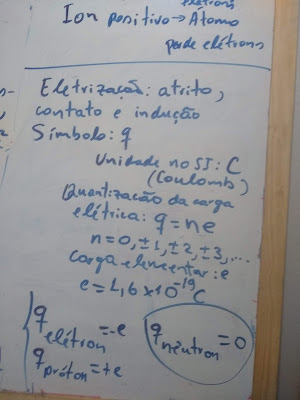 elétrons
Íon positivo → Átomo
perde elétrons
Eletrização: atrito,
contato e indução
Símbolo: q
Unidade no SI: C
(Coulomb)
Quantização da carga
elétrica: q = ne
n = 0, ±1, ±2, ±3, ...
carga elementar: e
e = 1,6 × 10⁻¹⁹ C
q elétron = -e
q próton = +e
q nêutron = 0